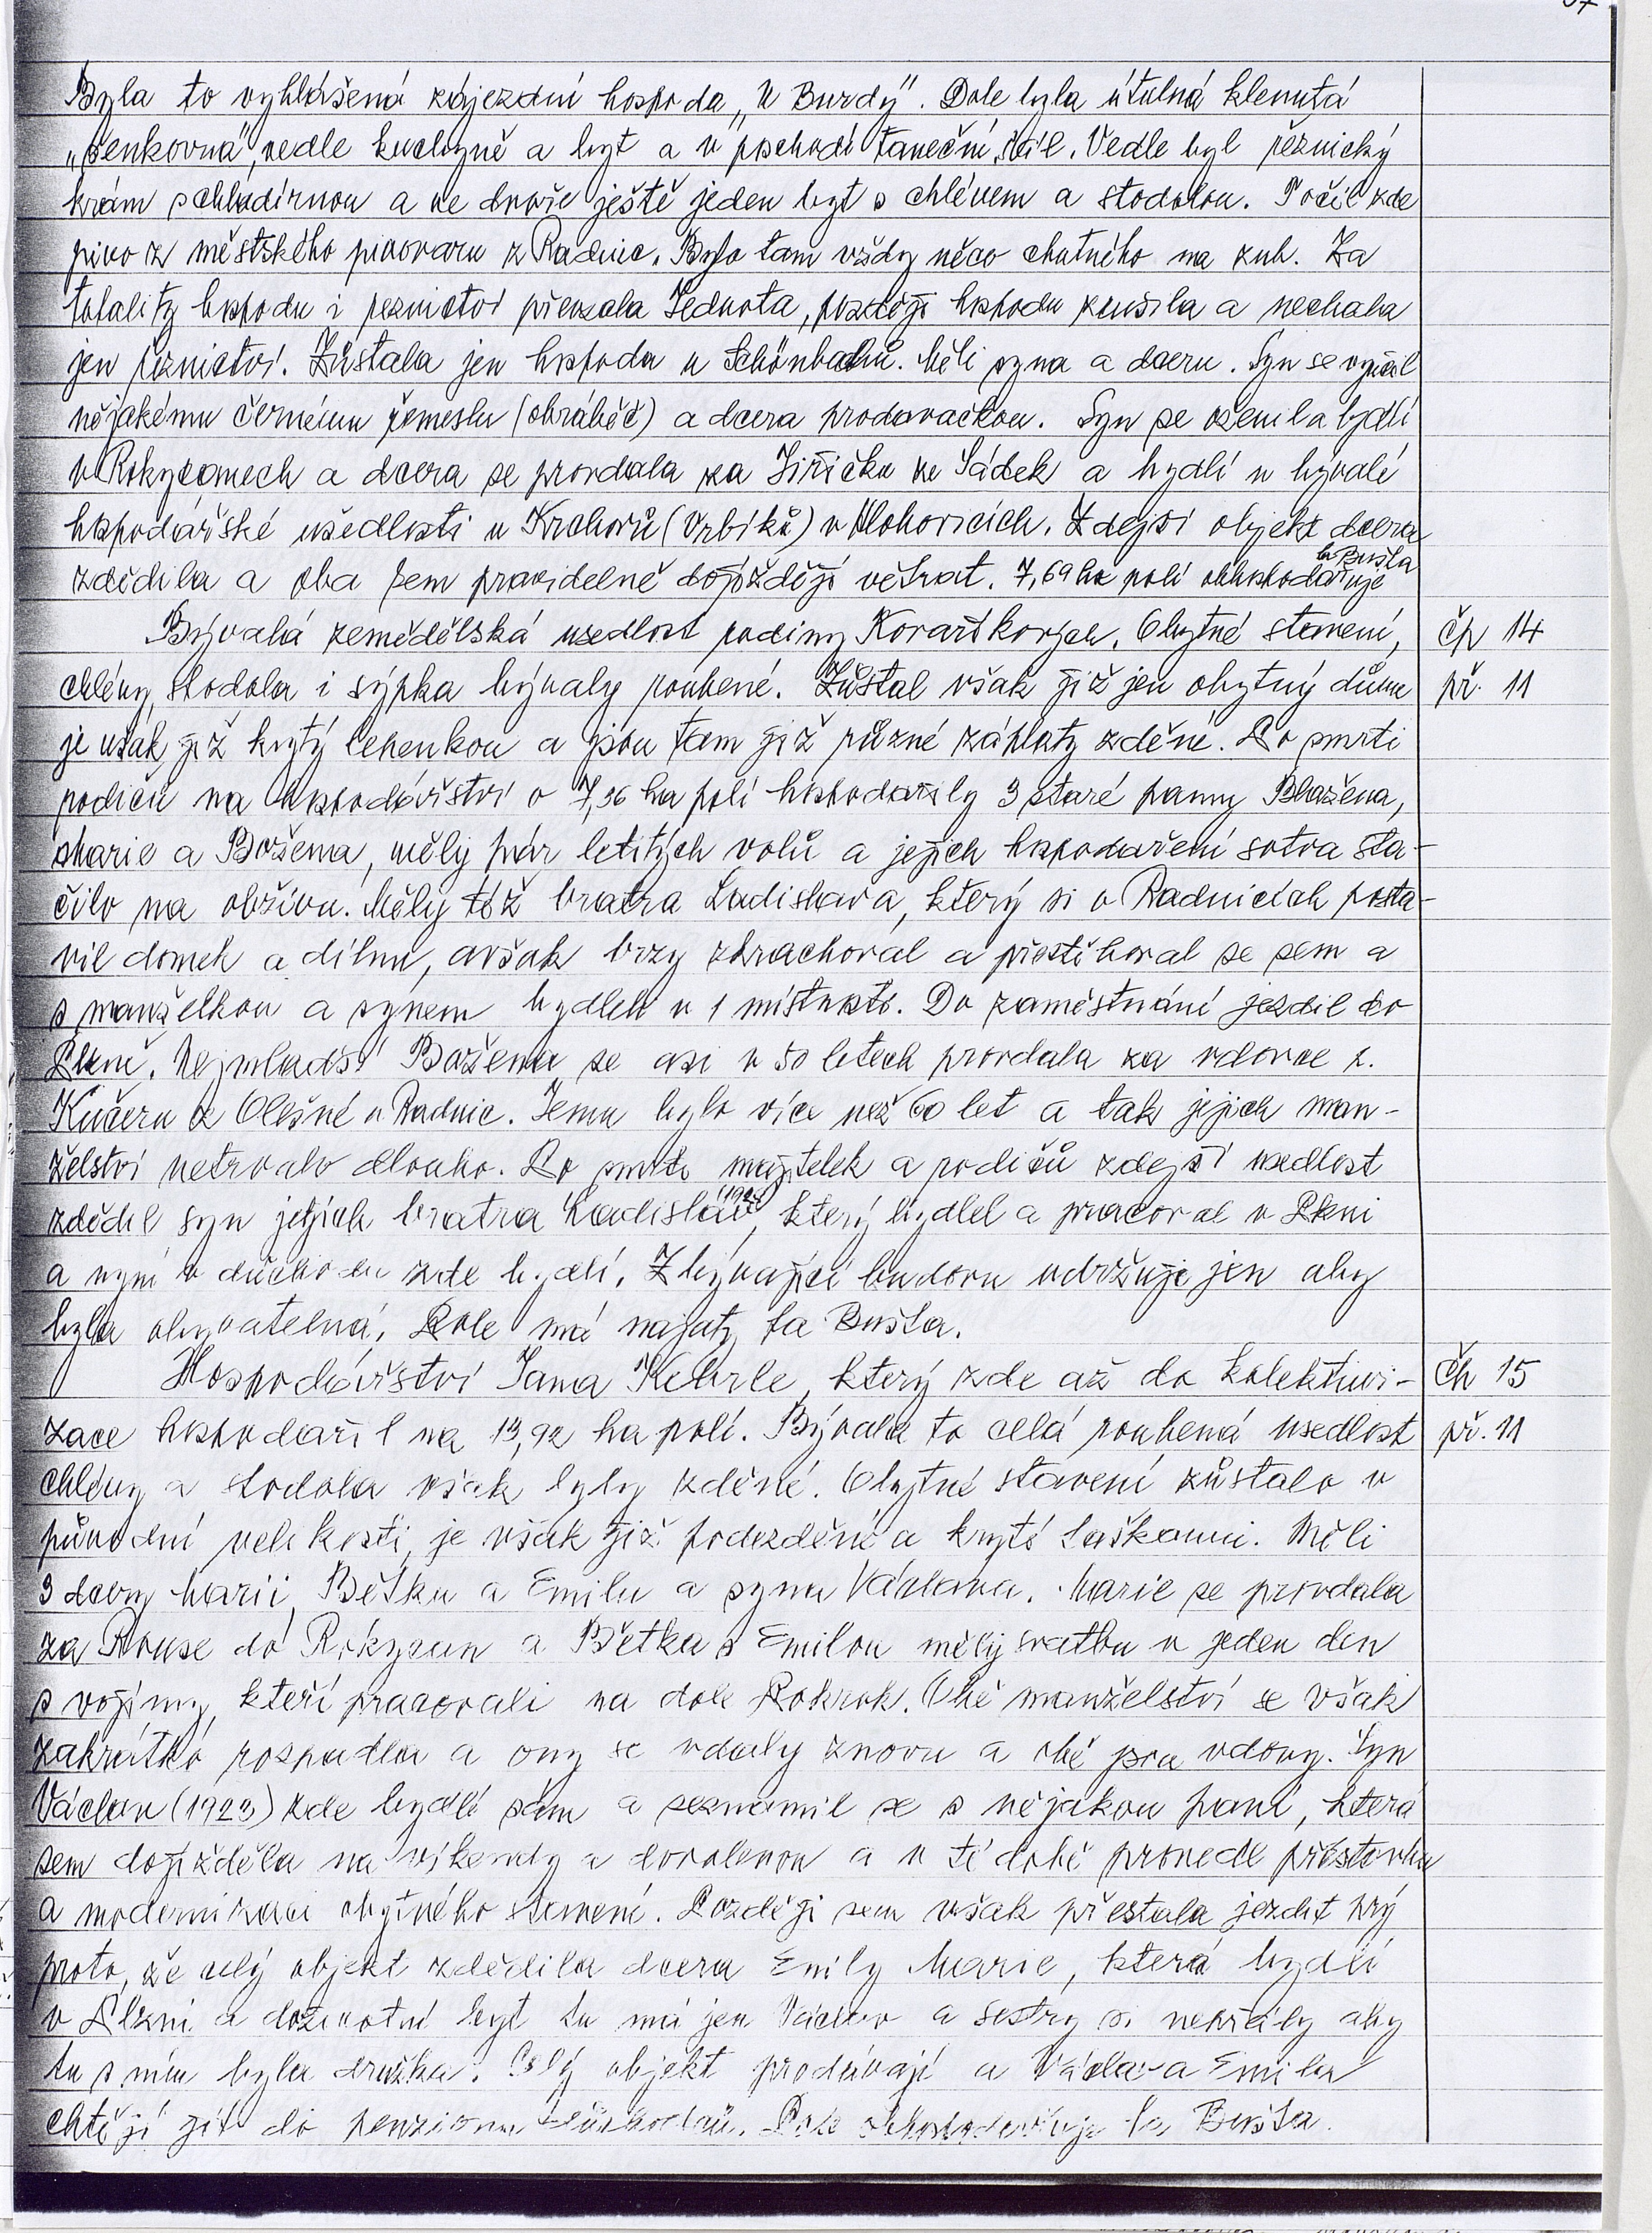 Byla to vyhlášená zájezdní hospoda „U Burdy". Dole byla útulná klenutá
„šenkovna", vedle kuchyně a byt a v poschodí taneční sál. Vedle byl řeznický
krám s chladírnou a ve dvoře ještě jeden byt s chlévem a stodolou. Točil zde
pivo z městského pivovaru z Radnic. Bylo tam vždy něco chutného na zub. Za
totality hospodu i řeznictví převzala Jednota, později hospodu zrušila a nechala
jen řeznictví. Zůstala jen hospoda u Schönbachů. Měli syna a dceru. Syn se vyučil
nějakému černému řemeslu (obráběč) a dcera prodavačkou. Syn se oženil a bydlí
v Rokycanech a dcera se provdala za Jiřičku ze Sádek a bydlí v bývalé
hospodářské usedlosti u Krchovů (Vrbíků) v Hlohovicích. Zdejší objekt dcera
zdědila a oba sem pravidelně dojíždějí větrat. 7,69 ha polí obhospodařuje
fa Bušta
Bývalá zemědělská usedlost rodiny Kovaříkových. Obytné stavení, čp 14
chlévy, stodola i sýpka bývaly roubené. Zůstal však již jen obytný dům př. 11
je však již krytý lepenkou a jsou tam již různé záplaty zděné. Po smrti
rodičů na hospodářství o 7,36 ha polí hospodařily 3 staré panny Blažena,
Marie a Božena, měly pár letitých volů a jejich hospodaření sotva sta-
čilo na obživu. Měly též bratra Ladislava, který si v Radnicích posta-
vil domek a dílnu, avšak brzy zkrachoval a přestěhoval se sem a
s manželkou a synem bydleli v 1 místnosti. Do zaměstnání jezdil do
Plzně. Nejmladší Božena se asi v 50 letech provdala za vdovce p.
Kučeru z Olešné u Radnic. Jemu bylo více než 60 let a tak jejich man-
želství netrvalo dlouho. Po smrti majitelek a rodičů zdejší usedlost
zdědil syn jejich bratra Ladislav, který bydlel a pracoval v Plzni
a nyní v důchodu zde bydlí. Zbývající budovu udržuje jen aby
byla obyvatelná. Pole má najaty fa Bušta.
Hospodářství Jana Kehrle, který zde až do kolektivi- čp 15
zace hospodařil na 13,92 ha polí. Bývala to celá roubená usedlost př. 11
chlévy a stodola však byly zděné. Obytné stavení zůstalo v
původní velikosti, je však již podezděné a kryté taškami. Měli
3 dcery Marii, Bětku a Emilu a syna Václava. Marie se provdala
za Rouse do Rokycan a Bětka s Emilou měly svatbu v jeden den
s vojíny, kteří pracovali na dole Pokrok. Obě manželství se však
zakrátko rozpadla a ony se vdaly znovu a obě jsou vdovy. Syn
Václav (1923) zde bydlí sám a seznámil se s nějakou paní, která
sem dojížděla na víkendy a dovolenou a v té době provedl přestavbu
a modernizaci obytného stavení. Později sem však přestala jezdit prý
proto, že celý objekt zdědila dcera Emily Marie, která bydlí
v Plzni a doživotní byt tu má jen Václav a sestry si nepřály aby
tu s ním byla družka. Celý objekt prodávají a Václav a Emila
chtějí jít do penzionu důchodců. Pole obhospodařuje fa Bušta.